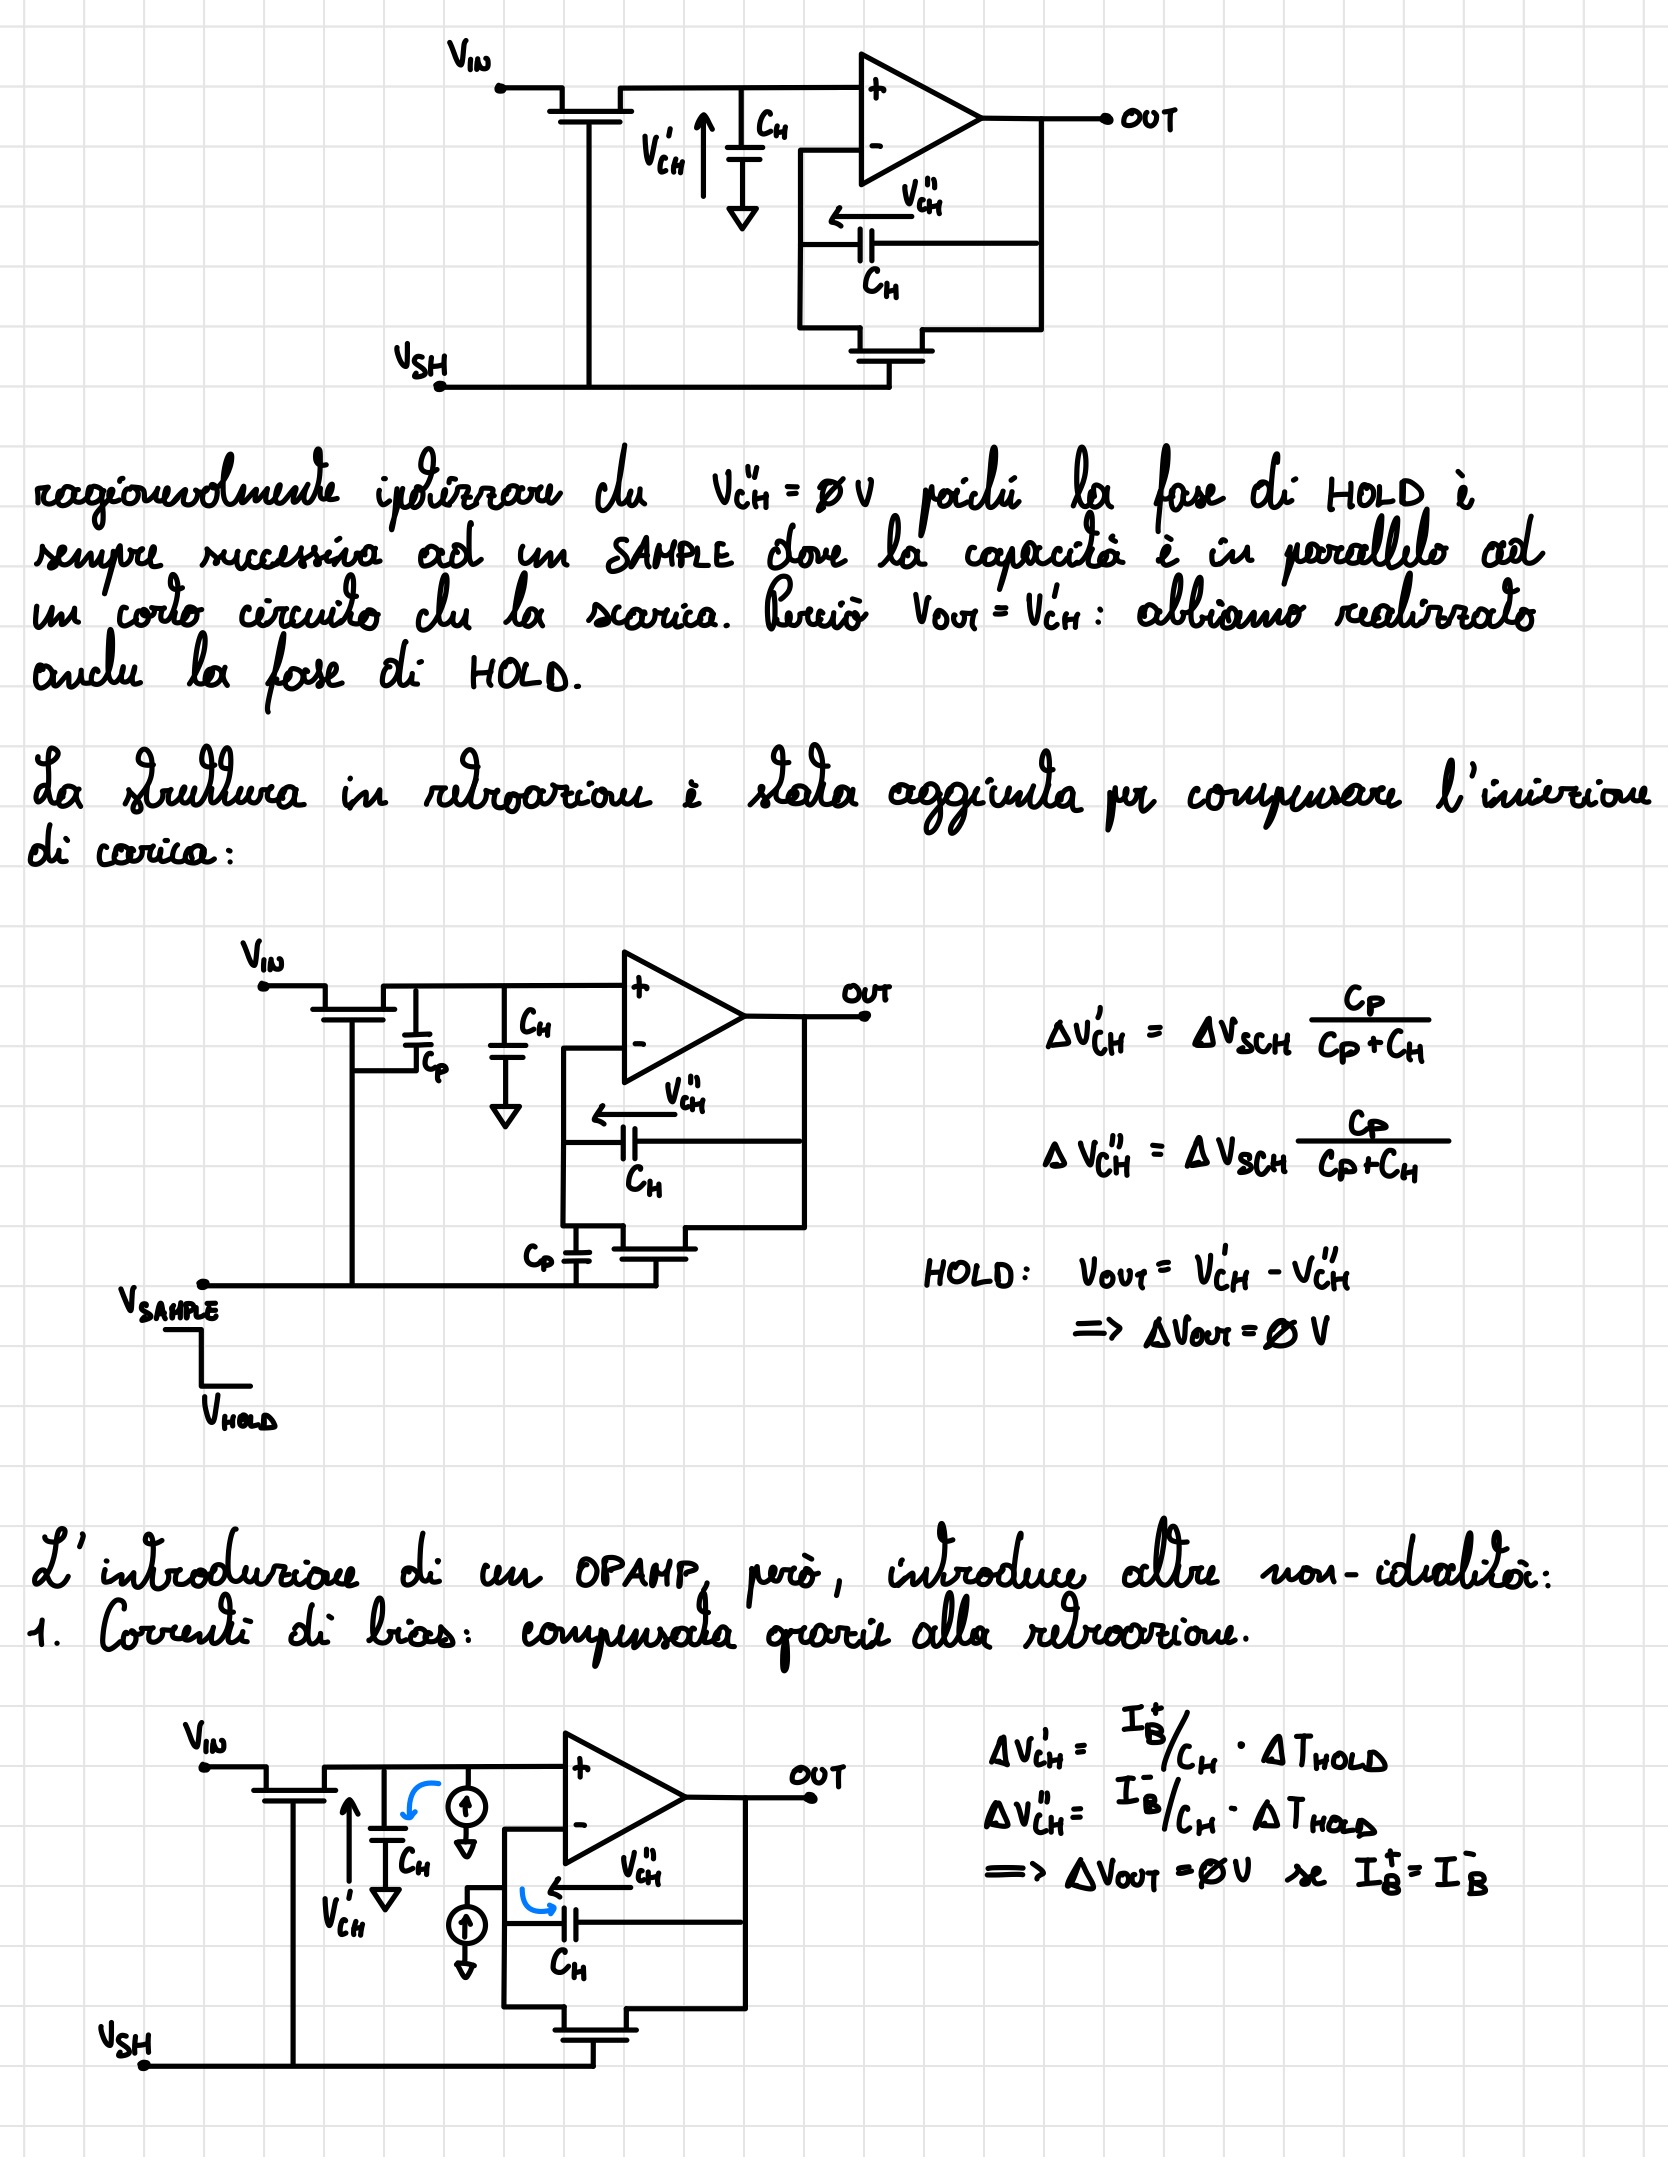 V_IN
V'_CH
C_H
+
-
OUT
V''_CH
C_H
V_SH
ragionevolmente ipotizzare che V''_CH = Ø V poiché la fase di HOLD è
sempre successiva ad un SAMPLE dove la capacità è in parallelo ad
un corto circuito che la scarica. Perciò V_OUT = V'_CH : abbiamo realizzato
anche la fase di HOLD.
La struttura in retroazione è stata aggiunta per compensare l'iniezione
di carica:
V_IN
C_P
C_H
+
-
OUT
V''_CH
C_H
C_P
V_SAMPLE
V_HOLD
ΔV'_CH = ΔV_SCH C_P / (C_P + C_H)
ΔV''_CH = ΔV_SCH C_P / (C_P + C_H)
HOLD: V_OUT = V'_CH - V''_CH
=> ΔV_OUT = Ø V
L'introduzione di un OPAMP, però, introduce altre non-idealità:
1. Correnti di bias: compensata grazie alla retroazione.
V_IN
V'_CH
C_H
+
-
OUT
V''_CH
C_H
V_SH
ΔV'_CH = I_B^+ / C_H · ΔT_HOLD
ΔV''_CH = I_B^- / C_H · ΔT_HOLD
=> ΔV_OUT = Ø V se I_B^+ = I_B^-